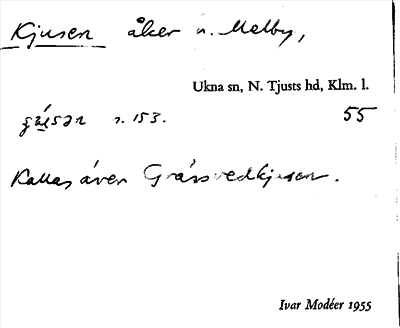 Kjusen åker n. Melby,
Ukna sn, N. Tjusts hd, Klm. l.
s. 153. 55
Kallas även Gråsvedkjusen.
Ivar Modéer 1955